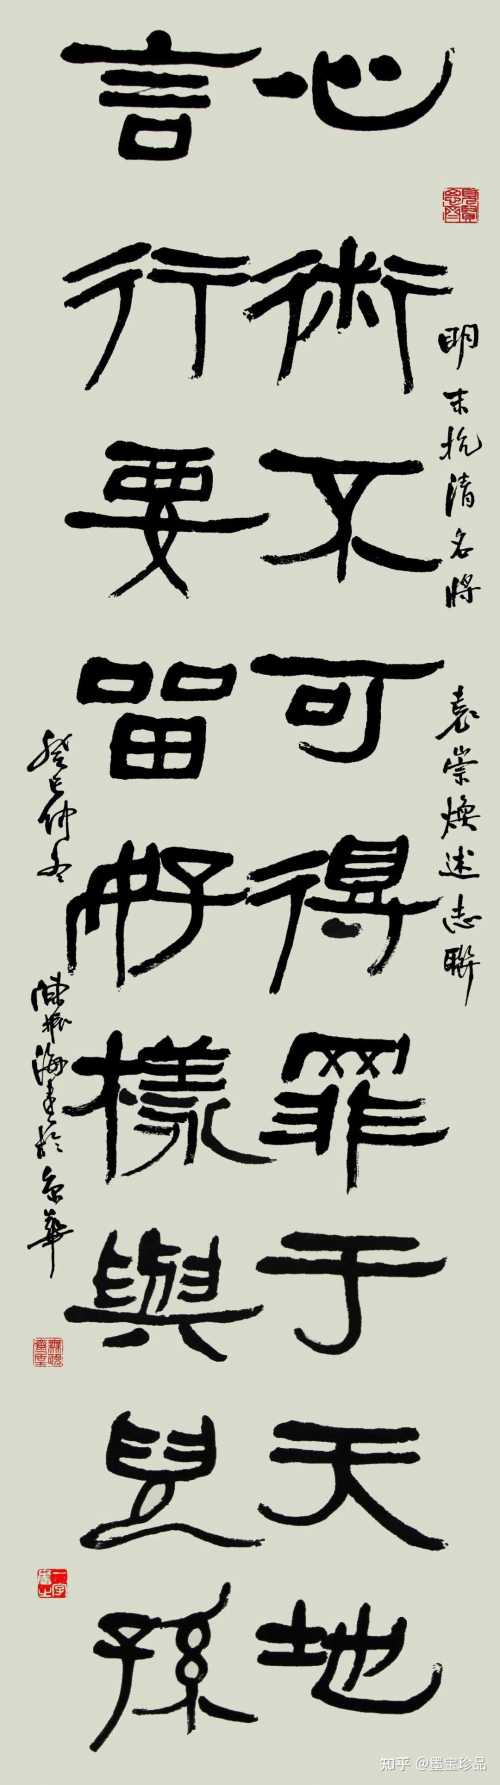 見賢思齊
明末抗清名將 袁崇煥述志聯
心術不可得罪于天地
言行要留好樣與兒孫
癸巳仲冬 陳振海書於京華
知乎 @墨宝珍品